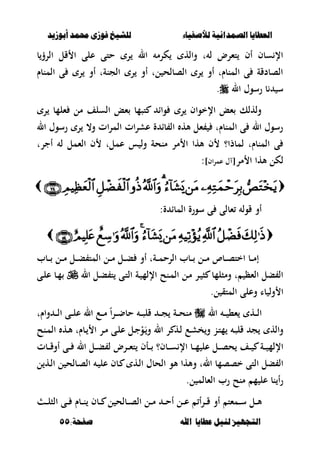 العطايا الصمدانية للأصفياء للشيخ فوزى محمد أبوزيد
الإنسان أن يتعرض له، والذى يكرمه الله يرى حتى على الأقل الرؤيا
الصادقة فى المنام، أو يرى الصالحين، أو يرى الجنة، أو يرى فى المنام
سيدنا رسول الله ﷺ.
ولذلك بعض الإخوان يرى فوائد كتبها بعض السلف من فعلها يرى
رسول الله فى المنام، فيفعل هذه الفائدة عشرات المرات ولا يرى رسول الله
فى المنام، لماذا؟ لأن هذا الأمر منحة وليس عمل، لأن العمل له أجر،
لكن هذا الأمر[آل عمران]:
﴿ يَخْتَصُّ بِرَحْمَتِهِۦ مَن يَشَآءُ ۗ وَٱللَّهُ ذُو ٱلْفَضْلِ ٱلْعَظِيمِ ﴾
أو قوله تعالى فى سورة المائدة:
﴿ ذَٰلِكَ فَضْلُ ٱللَّهِ يُؤْتِيهِ مَن يَشَآءُ ۚ وَٱللَّهُ وَٰسِعٌ عَلِيمٌ ﴾
إما اختصاص من باب الرحمة، أو فضل من المتفضل من باب
الفضل العظيم، ومثلها كثير من المنح الإلهية التى يتفضل الله ﷻ بها على
الأولياء وعلى المتقين.
الذى يعطيه الله ﷻ منحة يجد قلبه حاضراً مع الله على الدوام،
والذى يجد قلبه يهتز ويخشع لذكر الله ويَوْجل على مر الأيام، هذه المنح
الإلهية كيف يحصل عليها الإنسان؟ بأن يتعرض لفضل الله فى أوقات
الفضل التى خصصها الله، وهذا هو الحال الذى كان عليه الصالحين الذين
رأينا عليهم منح رب العالمين.
هل سمعتم أو قرأتم عن أحد من الصالحين كان ينام فى الثلث
التجهيز لنيل عطايا الله صفحة:٥٥